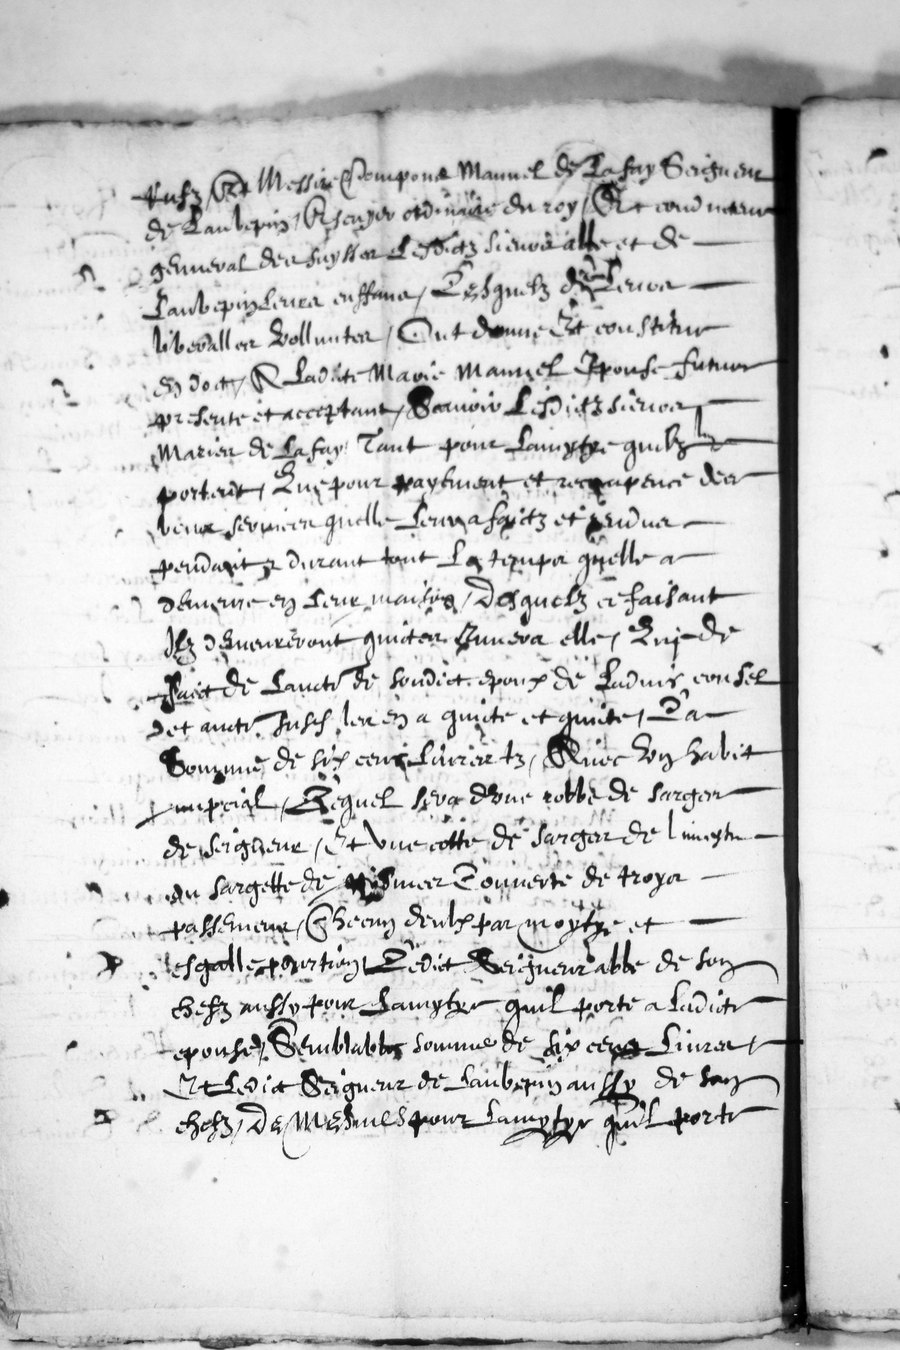 Et Messire Manuel de Lafay Seigneur
de Laubepin, Escuyer ordinaire du roy, Et conducteur
general des suysses Lesdictz sieurs abbe et de
Laubepin leurs enffans, Lesquelz de Leurs
liberalles vollontes, Ont donne Et constitue
en doct, A Ladicte Marie Manuel Epouse future
presente et acceptant, Scavoir Lesdictz sieurs
Maries de Lafay Tant pour Lamytye quilz
portent, Que pour payement et recompence des
bons services quelle Leur a faictz et rendus
pendant et durant tout Le temps quelle a
demeure en Leur maison, Desquelz ce faisant
Ilz demeureront quictes Envers elle, Qui de
faict de Laucte de sondict epoux de Ladvis consel
et aucte les en a quicte et quicte, La
Somme de six cens Livres tz, Avec Un habit
nupcial, Lequel sera dune robbe de sarges
de seigneur, Et Une cotte de sarges de
ou sargette de Couverte de troys
passemens, Checun deulx par moytye et
esgalle portion, Ledict Seigneur abbe de son
chefz aussy pour Lamytye quil porte a Ladicte
epouse, Semblable somme de six cens Livres,
Et Ledict Seigneur de Laubepin aussy de son
chefz, De Mesmes pour Lamytye quil porte